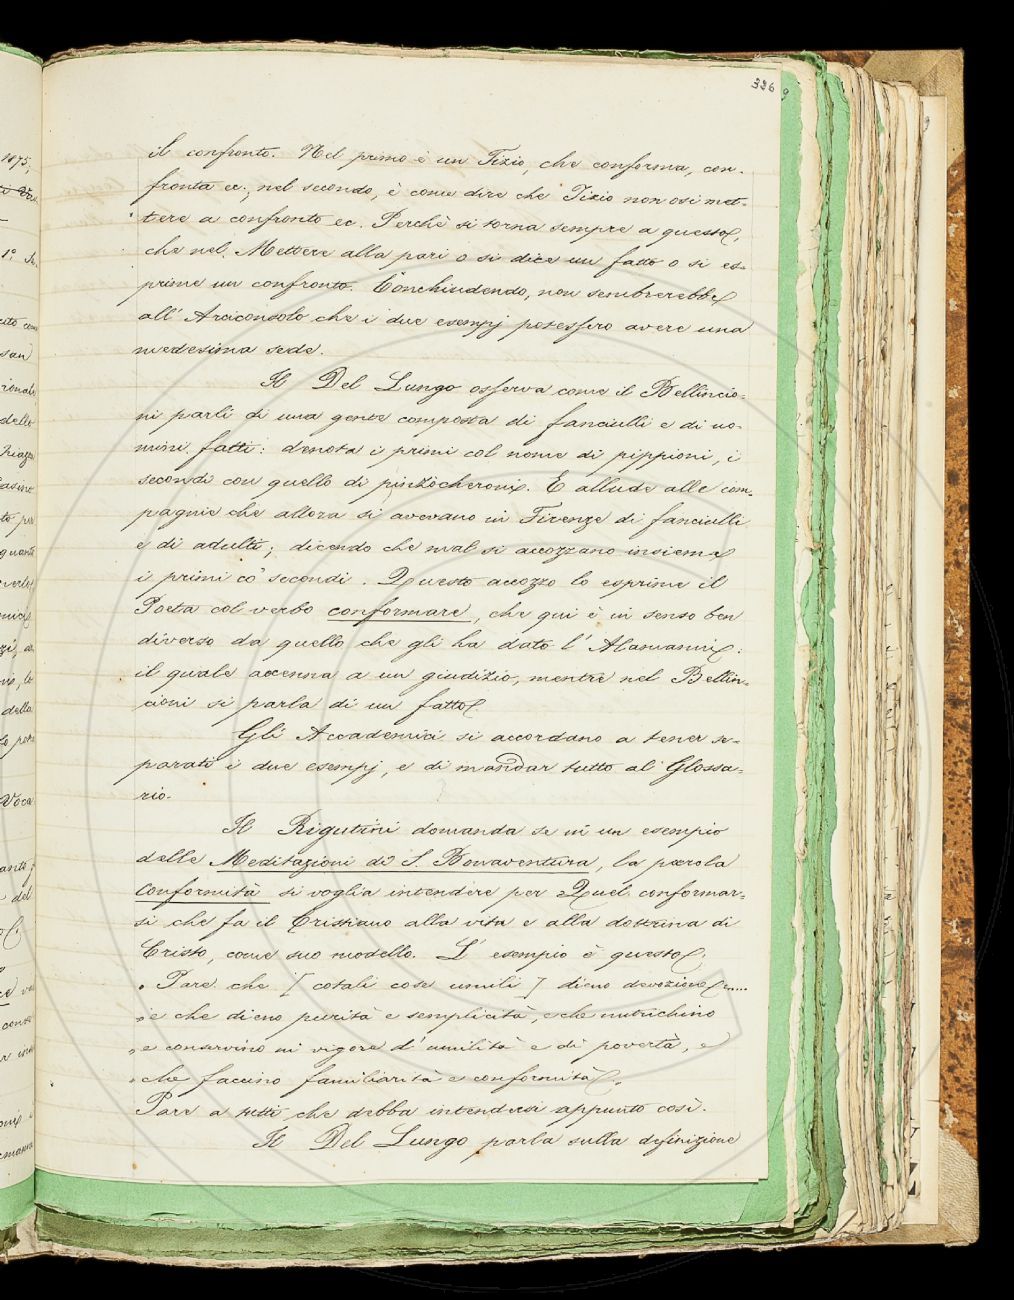 326
il confronto. Nel primo è un Tizio, che conforma, con-
fronta ec.; nel secondo, è come dire che Tizio non osi met-
tere a confronto ec. Perchè si torna sempre a questo,
che nel Mettere alla pari o si dice un fatto o si es-
prime un confronto. Conchiudendo, non sembrerebbe
all' Arciconsolo che i due esempj potessero avere una
medesima sede.
Il Del Lungo osserva come il Bellincio-
ni parli di una gente composta di fanciulli e di uo-
mini fatti: denota i primi col nome di pippioni, i
secondi con quello di pinzocheroni. E allude alle com-
pagnie che allora si avevano in Firenze di fanciulli
e di adulti; dicendo che mal si accozzano insieme
i primi co' secondi. Questo accozzo lo esprime il
Poeta col verbo conformare, che qui è in senso ben
diverso da quello che gli ha dato l' Alamanni:
il quale accenna a un giudizio, mentre nel Bellin-
cioni si parla di un fatto.
Gli Accademici si accordano a tener se-
parati i due esempj, e di mandar tutto al Glossa-
rio.
Il Rigutini domanda se in un esempio
delle Meditazioni di S. Bonaventura, la parola
Conformità si voglia intendere per Quel conformar-
si che fa il Cristiano alla vita e alla dottrina di
Cristo, come suo modello. L' esempio è questo:
" Pare che [ cotali cose umili ] dieno devozione ....
" e che dieno purità e semplicità, e che nutrichino
" e conservino in vigore d' umilità e di povertà, e
" che faccino familiarità e conformità".
Pare a tutti che debba intendersi appunto così.
Il Del Lungo parla sulla definizione